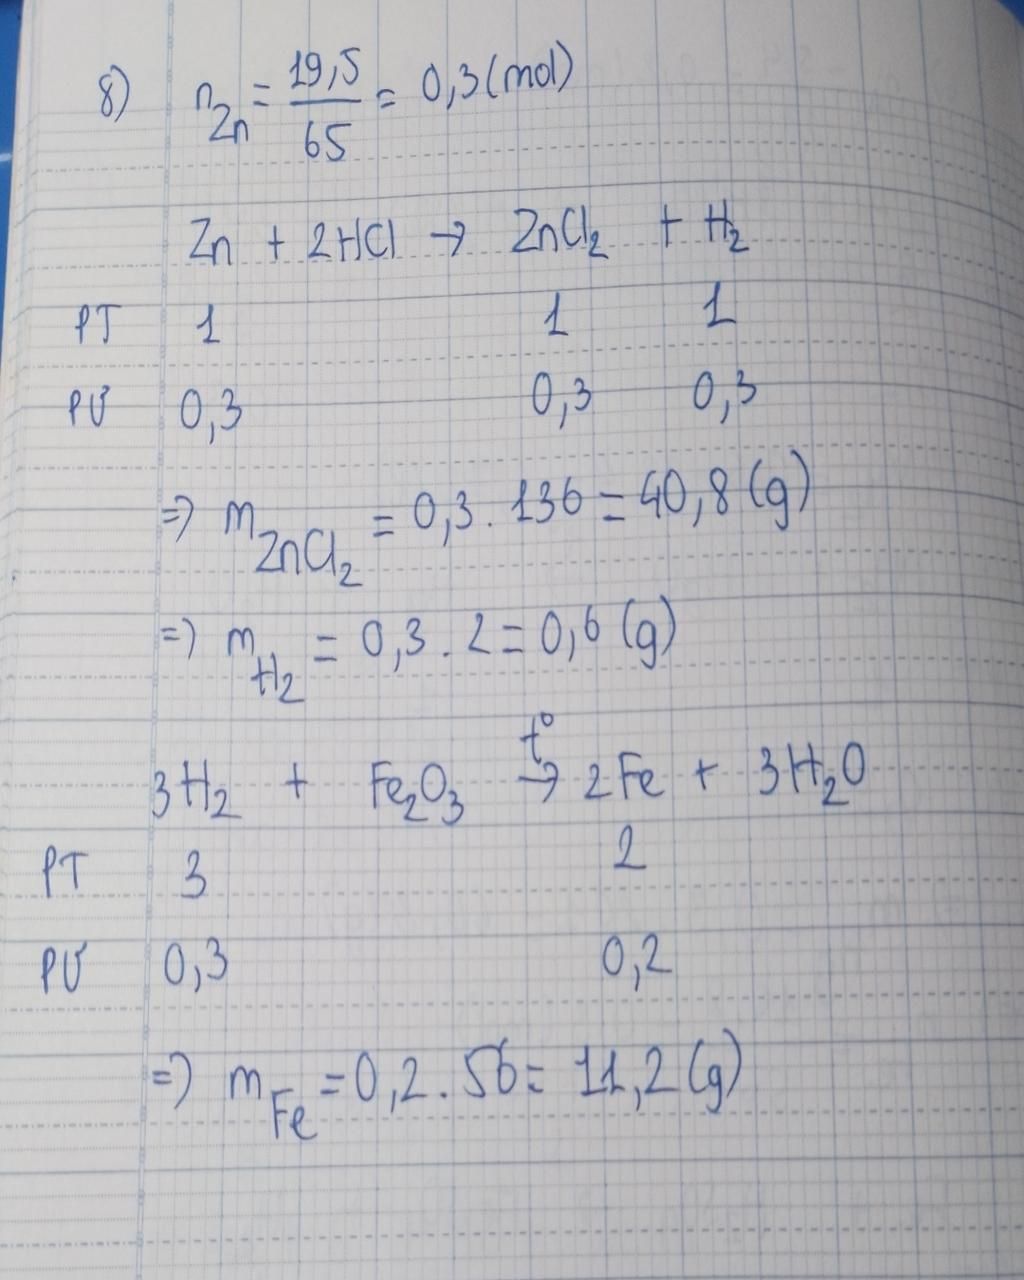 8) n Zn = 19,5 / 65 = 0,3 (mol)
Zn + 2HCl → ZnCl₂ + H₂
PT 1 1 1
PƯ 0,3 0,3 0,3
=) m ZnCl₂ = 0,3 . 136 = 40,8 (g)
=) m H₂ = 0,3 . 2 = 0,6 (g)
3H₂ + Fe₂O₃ t° → 2Fe + 3H₂O
PT 3 2
PƯ 0,3 0,2
=) m Fe = 0,2 . 56 = 11,2 (g)